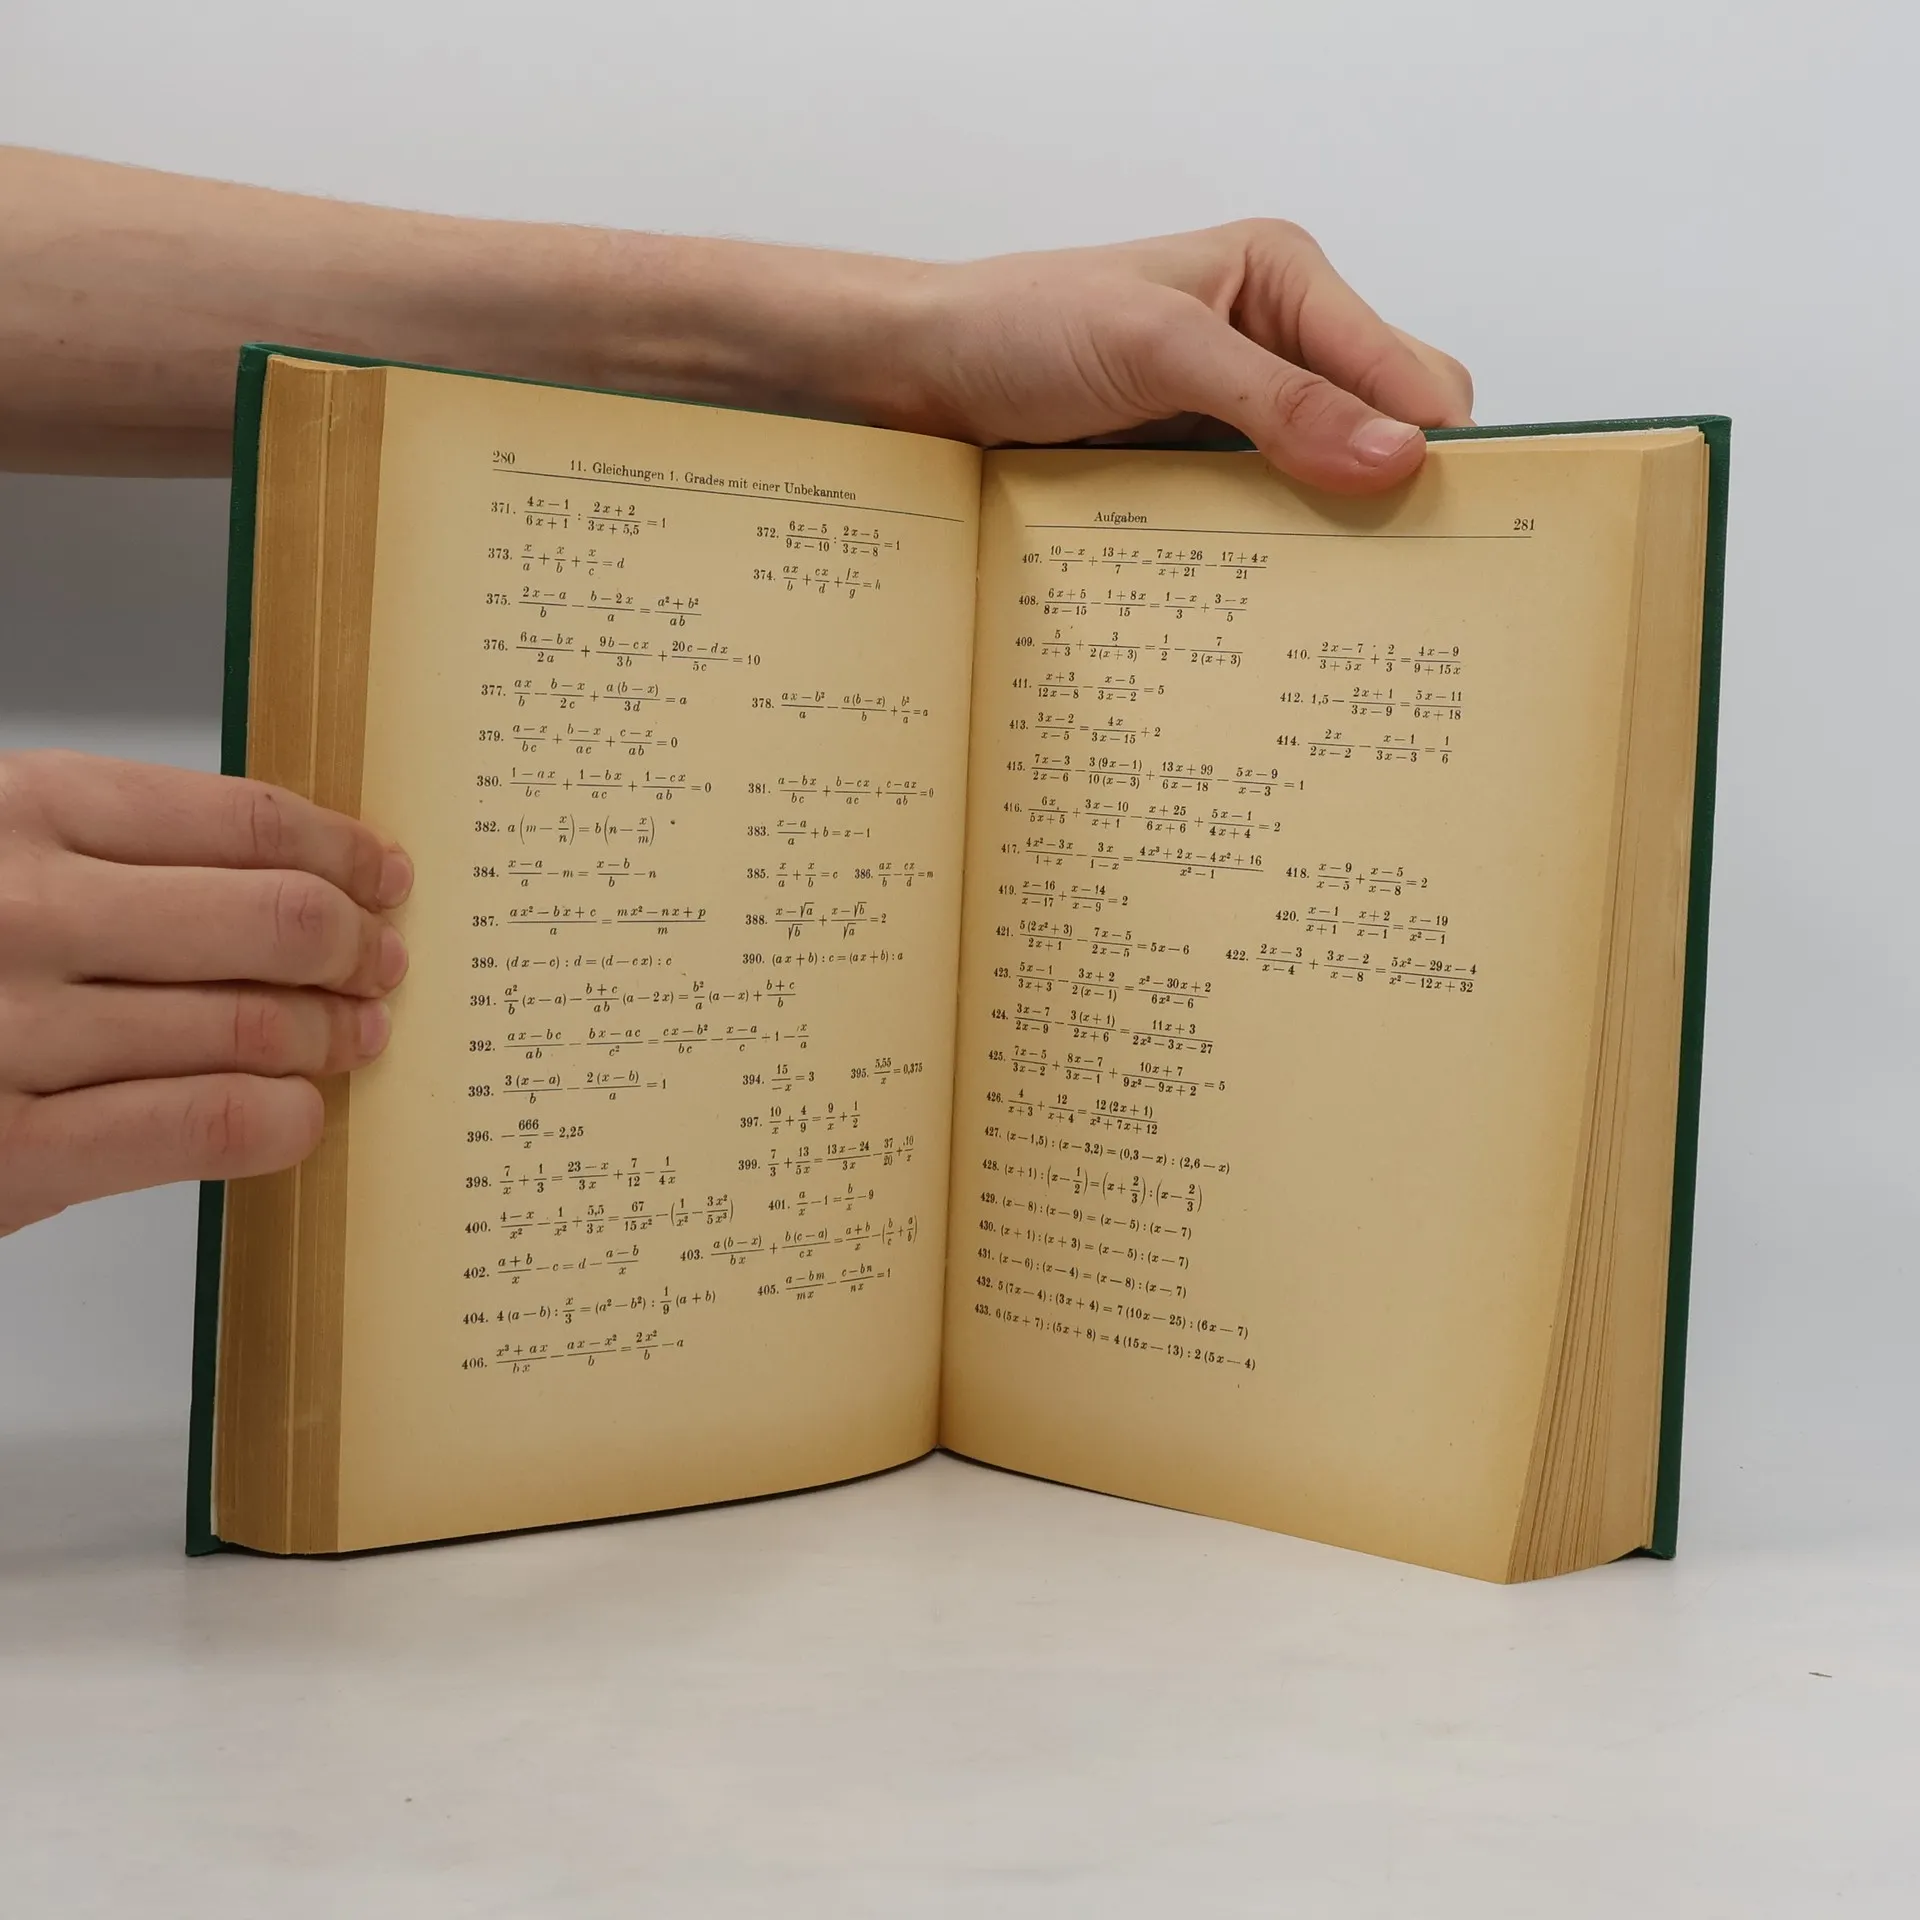 280 11. Gleichungen 1. Grades mit einer Unbekannten
371. (4x − 1)/(6x + 1) : (2x + 2)/(3x + 5,5) = 1 372. (6x − 5)/(9x − 10) : (2x − 5)/(3x − 8) = 1
373. x/a + x/b + x/c = d 374. ax/b + cx/d + fx/g = h
375. (2x − a)/b − (b − 2x)/a = (a² + b²)/ab
376. (6a − bx)/2a + (9b − cx)/3b + (20c − dx)/5c = 10
377. ax/b − (b − x)/2c + a(b − x)/3d = a 378. (ax − b²)/a − a(b − x)/b + b²/a = a
379. (a − x)/bc + (b − x)/ac + (c − x)/ab = 0
380. (1 − ax)/bc + (1 − bx)/ac + (1 − cx)/ab = 0 381. (a − bx)/bc + (b − cx)/ac + (c − ax)/ab = 0
382. a(m − x/n) = b(n − x/m) 383. (x − a)/a + b = x − 1
384. (x − a)/a − m = (x − b)/b − n 385. x/a + x/b = c 386. ax/b − cx/d = m
387. (ax² − bx + c)/a = (mx² − nx + p)/m 388. (x − √a)/√b + (x − √b)/√a = 2
389. (dx − c) : d = (d − cx) : c 390. (ax + b) : c = (ax + b) : a
391. a²/b (x − a) − (b + c)/ab (a − 2x) = b²/a (a − x) + (b + c)/b
392. (ax − bc)/ab − (bx − ac)/c² = (cx − b²)/bc − (x − a)/c + 1 − x/a
393. 3(x − a)/b − 2(x − b)/a = 1 394. 15/−x = 3 395. 5,55/x = 0,375
396. − 666/x = 2,25 397. 10/x + 4/9 = 9/x + 1/2
398. 7/x + 1/3 = (23 − x)/3x + 7/12 − 1/4x 399. 7/3 + 13/5x = (13x − 24)/3x − 37/20 + 10/x
400. (4 − x)/x² − 1/x² + 5,5/3x = 67/15x² − (1/x² − 3x²/5x³) 401. a/x − 1 = b/x − 9
402. (a + b)/x − c = d − (a − b)/x 403. a(b − x)/bx + b(c − a)/cx = (a + b)/x − (b/c + a/b)
404. 4(a − b) : x/3 = (a² − b²) : 1/9 (a + b) 405. (a − bm)/mx − (c − bn)/nx = 1
406. (x³ + ax)/bx − (ax − x²)/b = 2x²/b − a
Aufgaben 281
407. (10 − x)/3 + (13 + x)/7 = (7x + 26)/(x + 21) − (17 + 4x)/21
408. (6x + 5)/(8x − 15) − (1 + 8x)/15 = (1 − x)/3 + (3 − x)/5
409. 5/(x + 3) + 3/2(x + 3) = 1/2 − 7/2(x + 3) 410. (2x − 7)/(3 + 5x) + 2/3 = (4x − 9)/(9 + 15x)
411. (x + 3)/(12x − 8) − (x − 5)/(3x − 2) = 5 412. 1,5 − (2x + 1)/(3x − 9) = (5x − 11)/(6x + 18)
413. (3x − 2)/(x − 5) = 4x/(3x − 15) + 2 414. 2x/(2x − 2) − (x − 1)/(3x − 3) = 1/6
415. (7x − 3)/(2x − 6) − 3(9x − 1)/10(x − 3) + (13x + 99)/(6x − 18) − (5x − 9)/(x − 3) = 1
416. 6x/(5x + 5) + (3x − 10)/(x + 1) − (x + 25)/(6x + 6) + (5x − 1)/(4x + 4) = 2
417. (4x² − 3x)/(1 + x) − 3x/(1 − x) = (4x³ + 2x − 4x² + 16)/(x² − 1) 418. (x − 9)/(x − 5) + (x − 5)/(x − 8) = 2
419. (x − 16)/(x − 17) + (x − 14)/(x − 9) = 2 420. (x − 1)/(x + 1) − (x + 2)/(x − 1) = (x − 19)/(x² − 1)
421. 5(2x² + 3)/(2x + 1) − (7x − 5)/(2x − 5) = 5x − 6 422. (2x − 3)/(x − 4) + (3x − 2)/(x − 8) = (5x² − 29x − 4)/(x² − 12x + 32)
423. (5x − 1)/(3x + 3) − (3x + 2)/2(x − 1) = (x² − 30x + 2)/(6x² − 6)
424. (3x − 7)/(2x − 9) − 3(x + 1)/(2x + 6) = (11x + 3)/(2x² − 3x − 27)
425. (7x − 5)/(3x − 2) + (8x − 7)/(3x − 1) + (10x + 7)/(9x² − 9x + 2) = 5
426. 4/(x + 3) + 12/(x + 4) = 12(2x + 1)/(x² + 7x + 12)
427. (x − 1,5) : (x − 3,2) = (0,3 − x) : (2,6 − x)
428. (x + 1) : (x − 1/2) = (x + 2/3) : (x − 2/3)
429. (x − 8) : (x − 9) = (x − 5) : (x − 7)
430. (x + 1) : (x + 3) = (x − 5) : (x − 7)
431. (x − 6) : (x − 4) = (x − 8) : (x − 7)
432. 5(7x − 4) : (3x + 4) = 7(10x − 25) : (6x − 7)
433. 6(5x + 7) : (5x + 8) = 4(15x − 13) : 2(5x − 4)